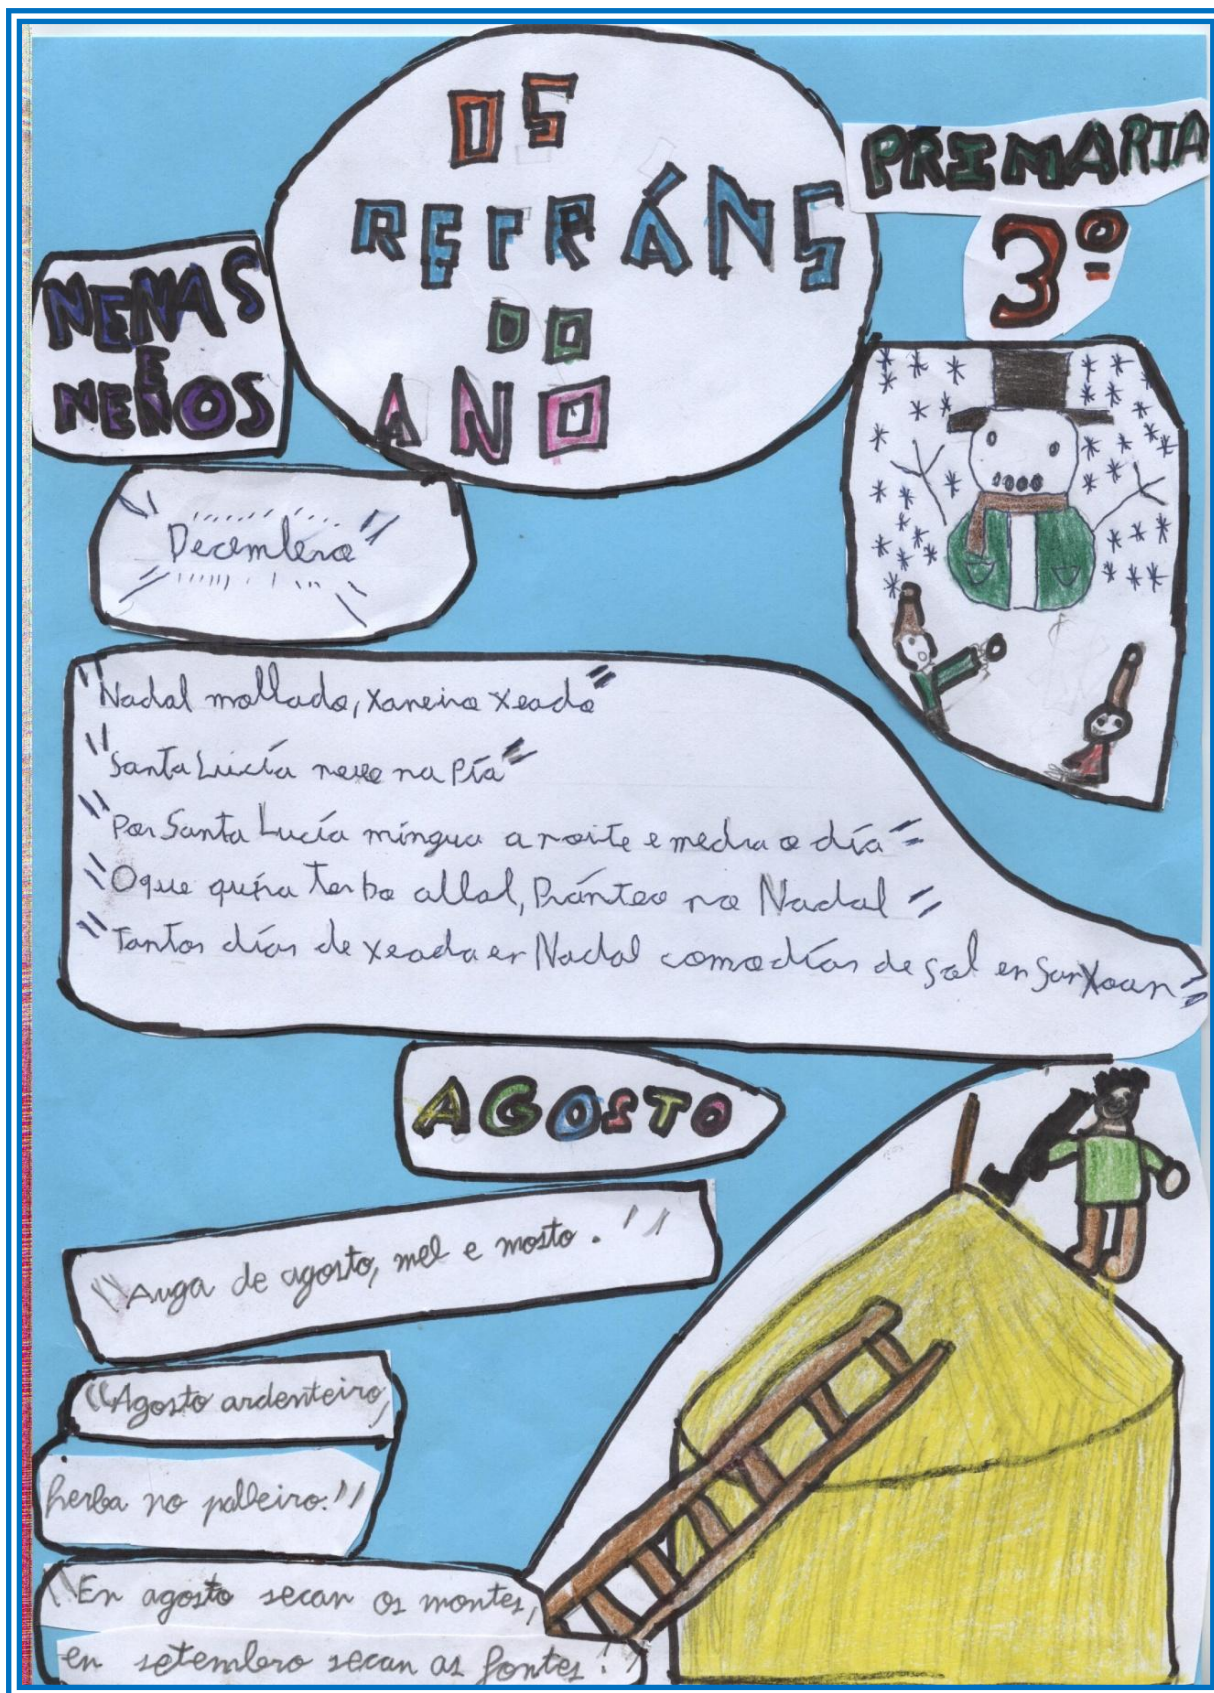 OS
REFRÁNS
DO
ANO
PRIMARIA
3º
NENAS
E
NENOS
Decembro
"Nadal mollado, xaneiro xeado"
"Santa Lucía neve na Pía"
"Por Santa Lucía míngua a noite e medra o día"
"O que quira ter bo allal, Plánteo no Nadal"
"Tantos días de xeada en Nadal como días de sol en San Xoan"
AGOSTO
"Auga de agosto, mel e mosto."
"Agosto ardenteiro,
herba no palleiro."
"En agosto secan os montes,
en setembro secan as fontes."